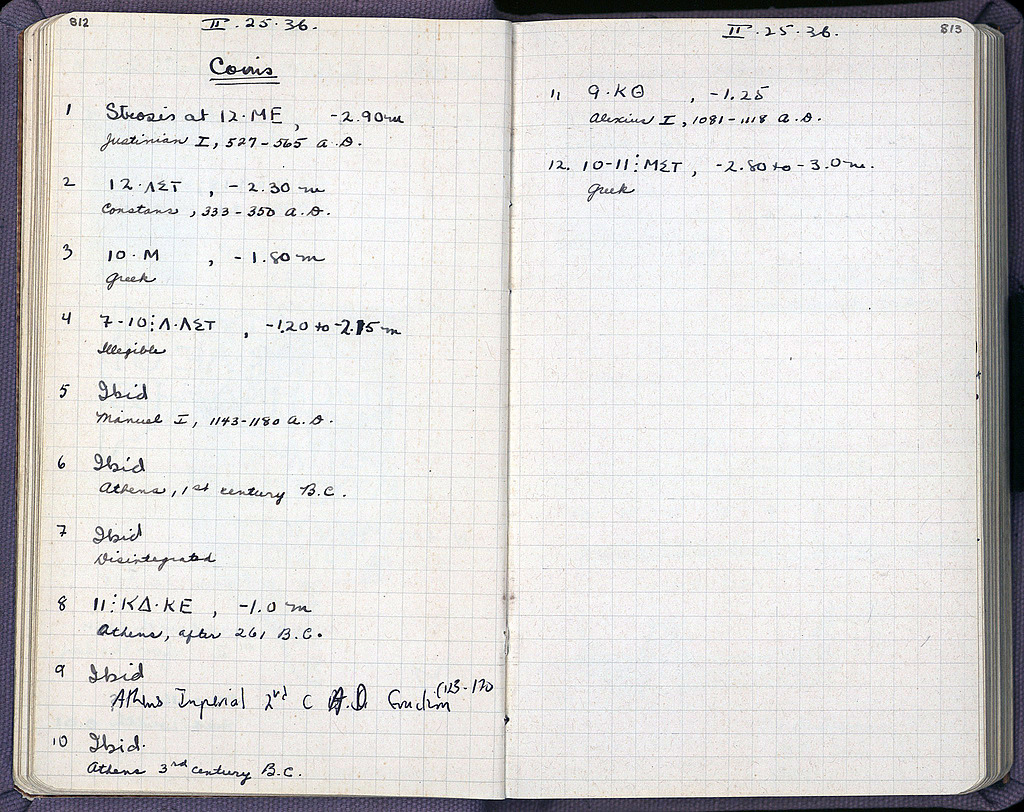 812
II · 25 · 36.
Coins
1 Strosis at 12·ΜΕ, -2.90m
Justinian I, 527-565 A.D.
2 12·ΛΣΤ, -2.30 m
Constans, 333-350 A.D.
3 10·Μ, -1.80 m
Greek
4 7-10⋮Λ·ΛΣΤ, -1.20 to -2.15 m
Illegible
5 Ibid
Manuel I, 1143-1180 A.D.
6 Ibid
Athens, 1st century B.C.
7 Ibid
Disintegrated
8 11⋮ΚΔ·ΚΕ, -1.0 m
Athens, after 261 B.C.
9 Ibid
Athens Imperial 2nd C A.D.
10 Ibid.
Athens 3rd century B.C.
II · 25 · 36.
813
11 9·ΚΘ, -1.25
Alexius I, 1081-1118 A.D.
12. 10-11⋮ΜΣΤ, -2.80 to -3.0 m.
Greek